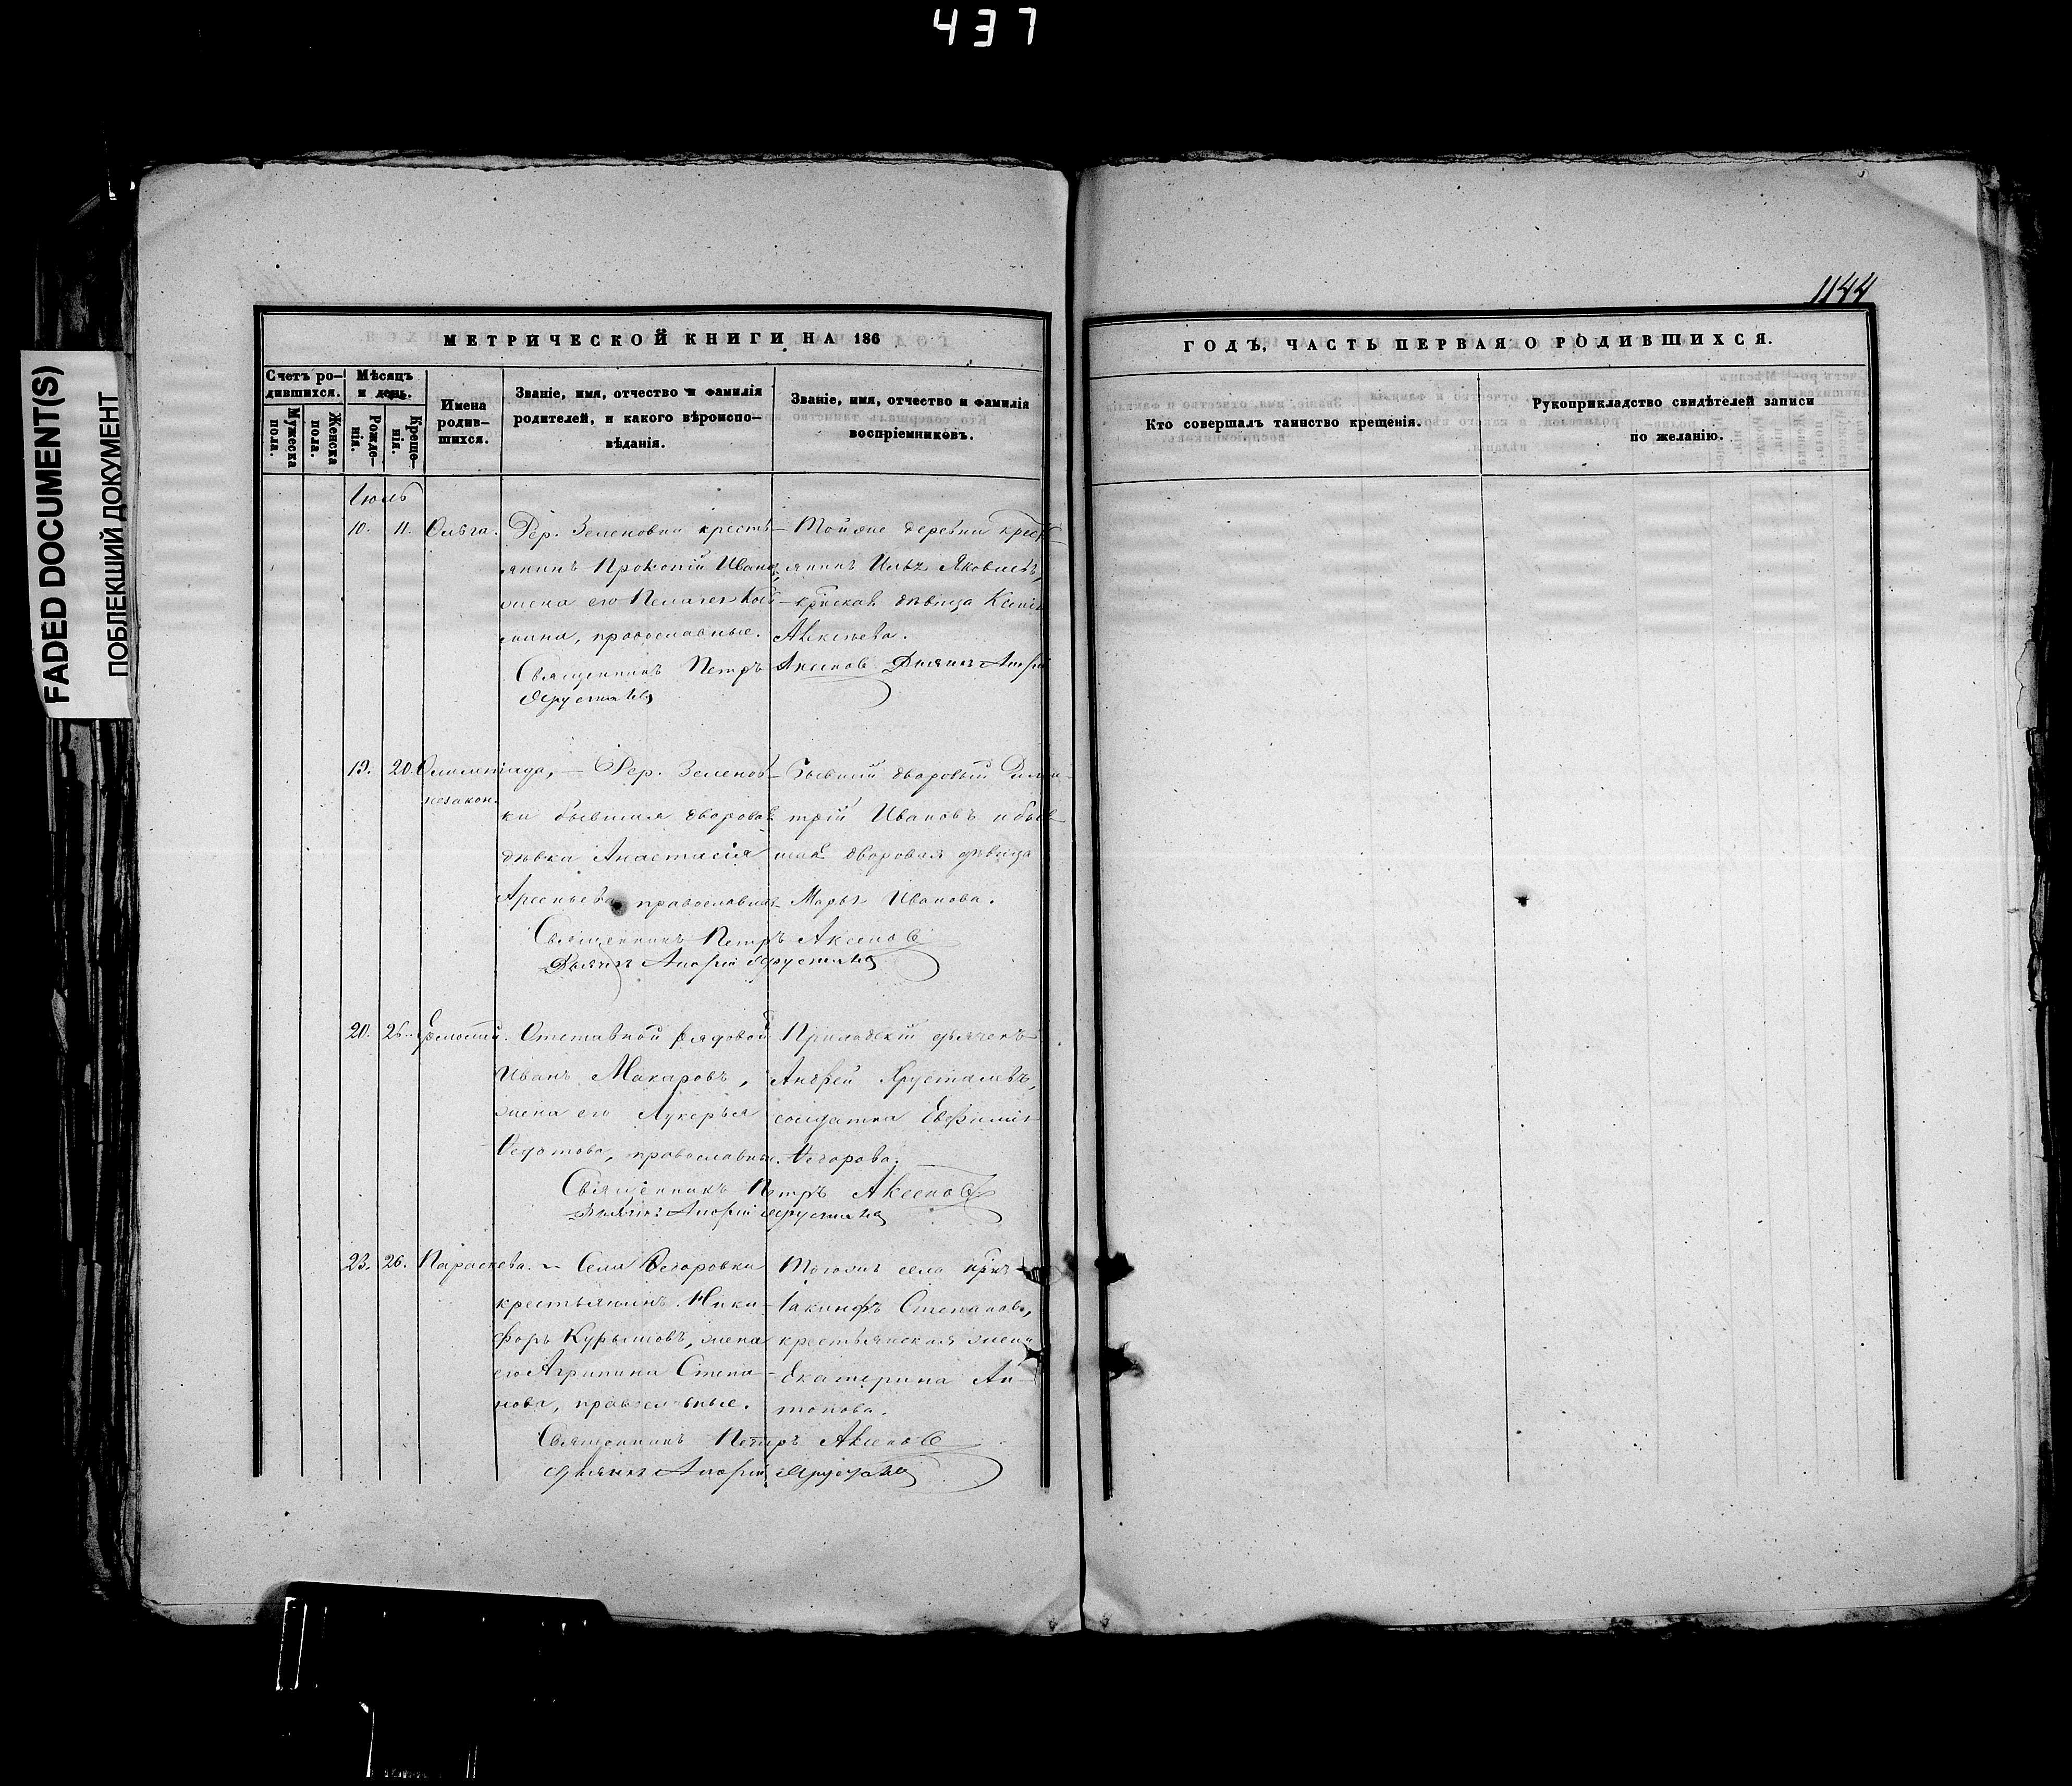 437
FADED DOCUMENT(S)
ПОБЛЕКШИЙ ДОКУМЕНТ
1144
МЕТРИЧЕСКОЙ КНИГИ НА 186
ГОДЪ, ЧАСТЬ ПЕРВАЯ О РОДИВШИХСЯ.
Счетъ ро-
дившихся.
Мужеска
пола.
Женска
пола.
Мѣсяцъ
и день.
Рожде-
нія.
Креще-
нія.
Имена
родив-
шихся.
Званіе, имя, отчество и фамилія
родителей, и какого вѣроиспо-
вѣданія.
Званіе, имя, отчество и фамилія
воспріемниковъ.
Кто совершалъ таинство крещенія.
Рукоприкладство свидѣтелей записи
по желанію.
Іюль
10. 11. Ольга.
Дер. Зеленовки кресть-
янинъ Прокопій Иванъ
жена его
православные.
Тойже деревни крест-
янинъ Яковлевъ,
дѣвица Ксенія
Алексѣева.
Священникъ Петръ Аксенов Дьячекъ Андрей
Хрусталев
19. 20. Олимпіада,
незакон.
Дер. Зеленов-
ки бывшая дворовая
дѣвка Анастасія
Арсеньева православная
бывшій дворовый Дими-
трій Ивановъ и быв-
шая дворовая дѣвица
Марья Иванова.
Священникъ Петръ Аксенов
Дьячекъ Андрей Хрусталев
20. 26. Ермолай.
Отставной рядовой
Иванъ Макаровъ,
жена его Лукерья
Ѳедотова, православные.
Приходскій дьячекъ
Андрей Хрусталевъ,
солдатка Евфимія
Ѳедорова.
Священникъ Петръ Аксенов
Дьячекъ Андрей Хрусталев
23. 26. Параскева.
Села Ѳедоровки
крестьянинъ Ники-
форъ Курышовъ, жена
его Агрипина Степа-
нова, православные.
Тогожъ села
Іакинфъ Степановъ,
крестьянская жена
Екатерина Ан-
тонова.
Священникъ Петръ Аксенов
Дьячекъ Андрей Хрусталев